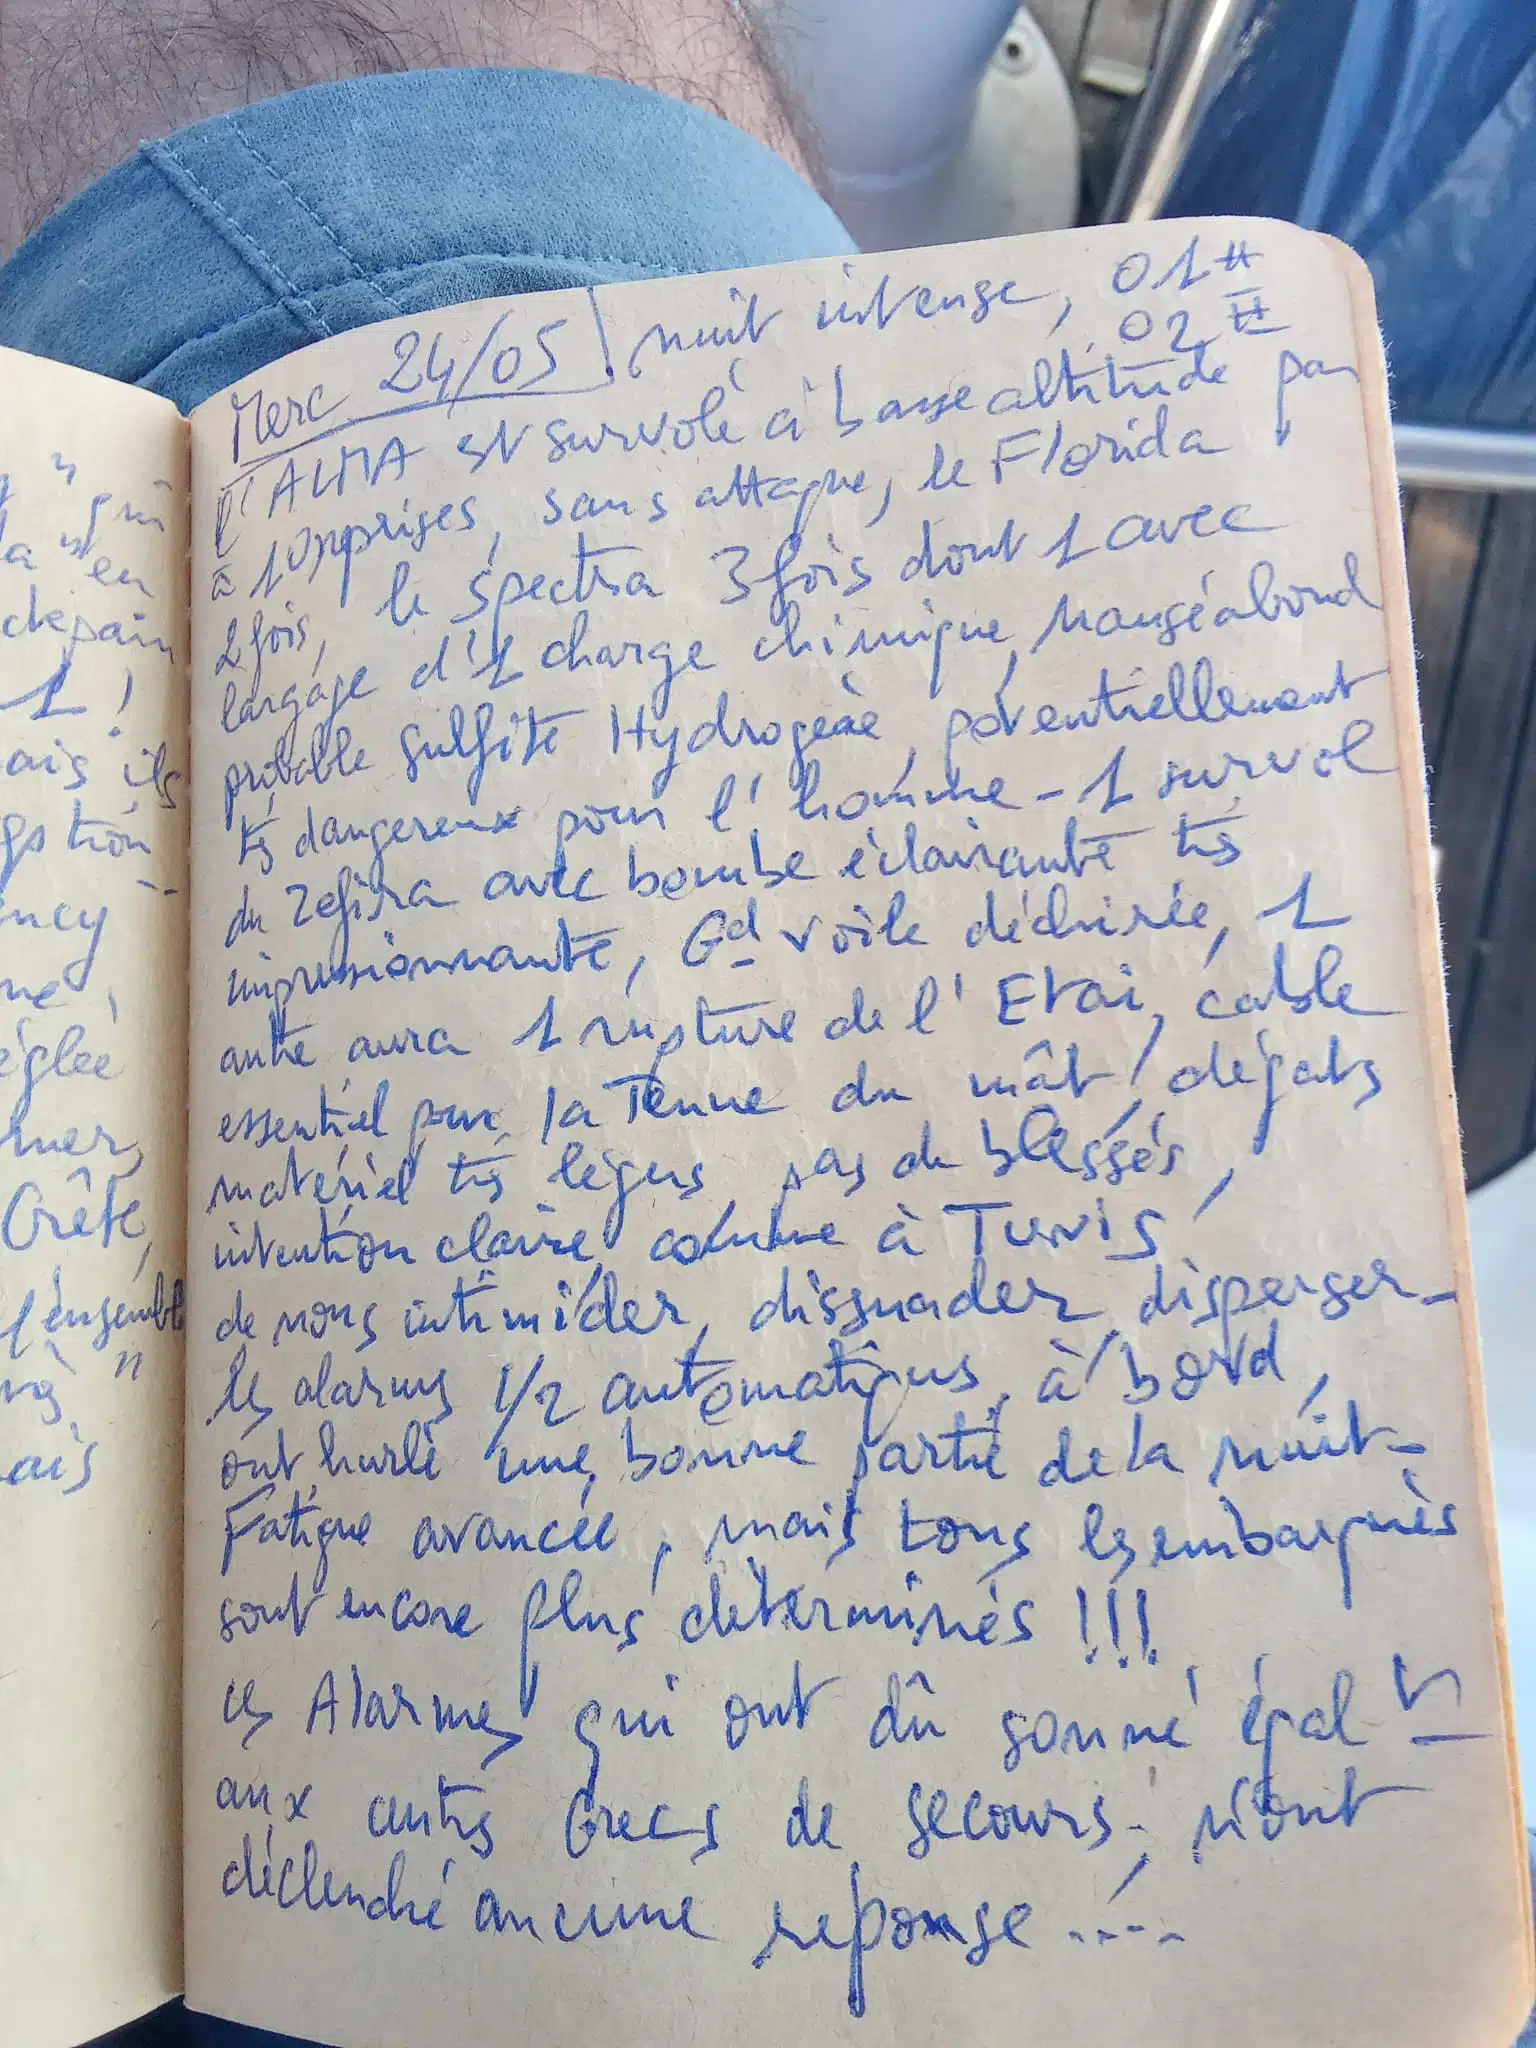 " qui
la " en
depain
1 !
ais ils
gstion
ency
né,
églée
mer,
Crête,
l'ensembl
"
ais
Merc 24/05 nuit intense, 01H
02H
l'ALMA est survolé à basse altitude par
à 10 reprises, sans attaque, le Florida
2 fois, le Spectra 3 fois dont 1 avec
largage d'1 charge chimique, nauséabond
probable sulfite Hydrogène, potentiellement
ts dangereux pour l'homme - 1 survol
du Zefiro avec bombe éclairante ts
impressionnante, Gd voile déchirée, 1
autre aura 1 rupture de l'Etai, cable
essentiel pour la Tenue du mât, dégats
matériel ts légers, pas de blessés,
intention claire, comme à Tunis,
de nous intimider, dissuader, disperser -
les alarmes 1/2 automatiques, à bord,
ont hurlé une bonne partie de la nuit -
Fatigue avancée, mais tous les embarqués
sont encore plus déterminés !!!
ces Alarmes qui ont dû sonné égal-
aux Grecs de secours, n'ont
déclenché aucune reponse ....